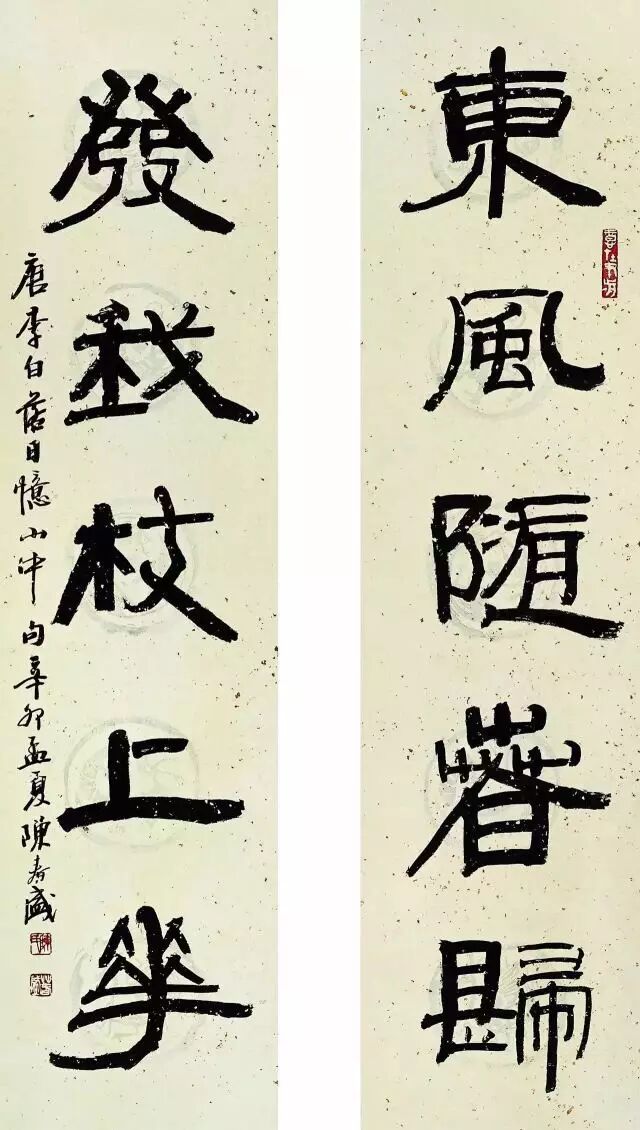 東風随春歸
發我枝上華
唐李白落日憶山中句辛卯孟夏陳春盛